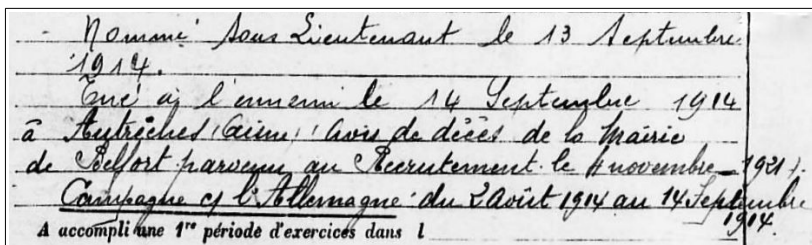 Nommé Sous Lieutenant le 13 Septembre
1914.
Tué à l'ennemi le 14 Septembre 1914
à Autrèches (Aisne) avis de décès de la Mairie
de Belfort parvenu au Recrutement le 4 novembre 1921.
Campagne c/ l'Allemagne du 2 Août 1914 au 14 Septembre
1914.
A accompli une 1re période d'exercices dans l